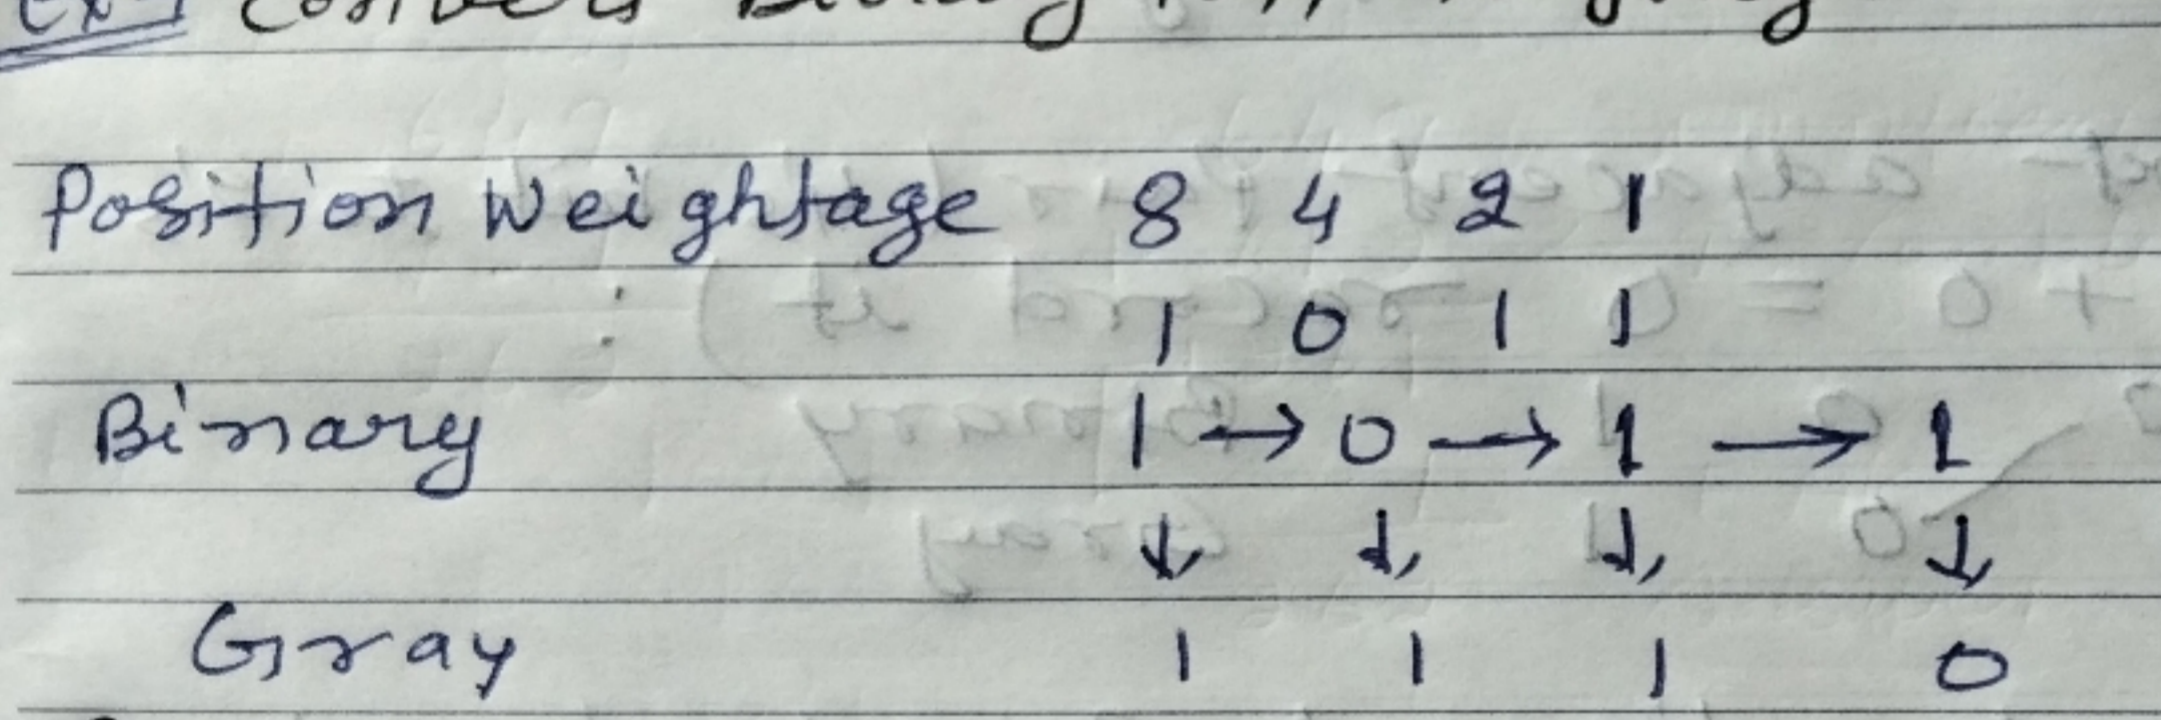 Position Weightage 8 4 2 1
: 1 0 1 1
Binary 1 → 0 → 1 → 1
↓ ↓ ↓ ↓
Gray 1 1 1 0